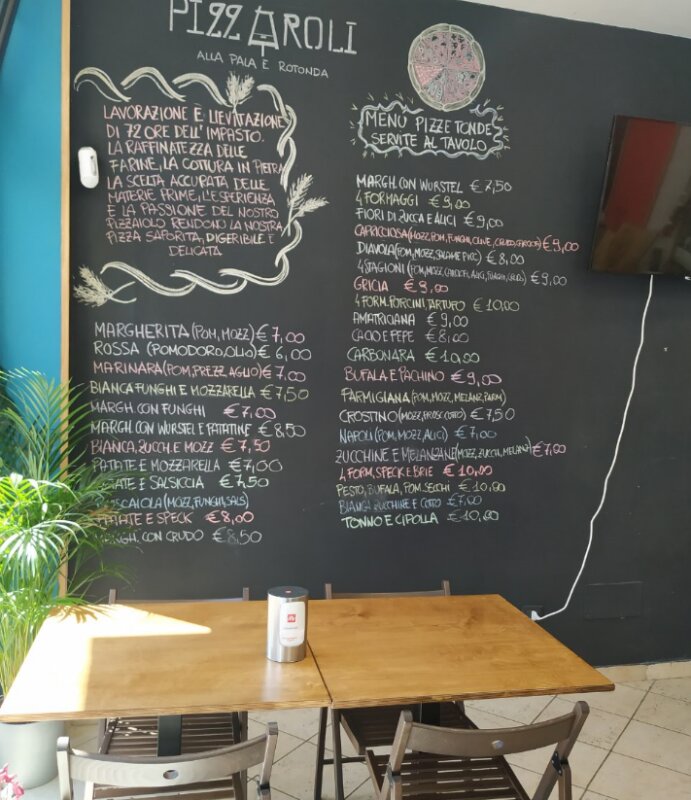 PIZZAROLI
ALLA PALA E ROTONDA
LAVORAZIONE E LIEVITAZIONE
DI 72 ORE DELL'IMPASTO.
LA RAFFINATEZZA DELLE
FARINE, LA COTTURA IN PIETRA
LA SCELTA ACCURATA DELLE
MATERIE PRIME, L'ESPERIENZA
E LA PASSIONE DEL NOSTRO
PIZZAIOLO RENDONO LA NOSTRA
PIZZA SAPORITA, DIGERIBILE E
DELICATA
MARGHERITA (POM, MOZZ) € 7,00
ROSSA (POMODORO, OLIO) € 6,00
MARINARA (POM, PREZZ. AGLIO) € 7,00
BIANCA FUNGHI E MOZZARELLA € 7,50
MARGH. CON FUNGHI € 7,00
MARGH. CON WURSTEL E PATATINE € 8,50
BIANCA, ZUCCH. E MOZZ € 7,50
PATATE E MOZZARELLA € 7,00
PATATE E SALSICCIA € 7,50
(MOZZ, FUNGHI, SALS)
PATATE E SPECK € 8,00
MARGH. CON CRUDO € 8,50
MENÙ PIZZE TONDE
SERVITE AL TAVOLO
MARGH. CON WURSTEL € 7,50
4 FORMAGGI € 9,00
FIORI DI ZUCCA E ALICI € 9,00
CAPRICCIOSA (MOZZ, POM, FUNGHI, OLIVE, CRUDO, CARCIOFI) € 9,00
DIAVOLA (POM, MOZZ, SALAME PICC.) € 8,00
4 STAGIONI (POM, MOZZ, CARCIOFI, ALICI, FUNGHI, CRUDO) € 9,00
GRICIA € 9,00
4 FORM. PORCINI TARTUFO € 10,00
AMATRICIANA € 9,00
CACIO E PEPE € 8,00
CARBONARA € 10,00
BUFALA E PACHINO € 9,00
PARMIGIANA (POM, MOZZ, MELANZ, PARM)
CROSTINO (MOZZ, PROSC. COTTO) € 7,50
NAPOLI (POM, MOZZ, ALICI) € 7,00
ZUCCHINE E MELANZANE (MOZZ, ZUCCHI, MELANZ) € 7,00
4 FORM, SPECK E BRIE € 10,00
PESTO, BUFALA, POM. SECCHI € 10,00
BIANCA ZUCCHINE E COTTO € 7,00
TONNO E CIPOLLA € 10,00
illy